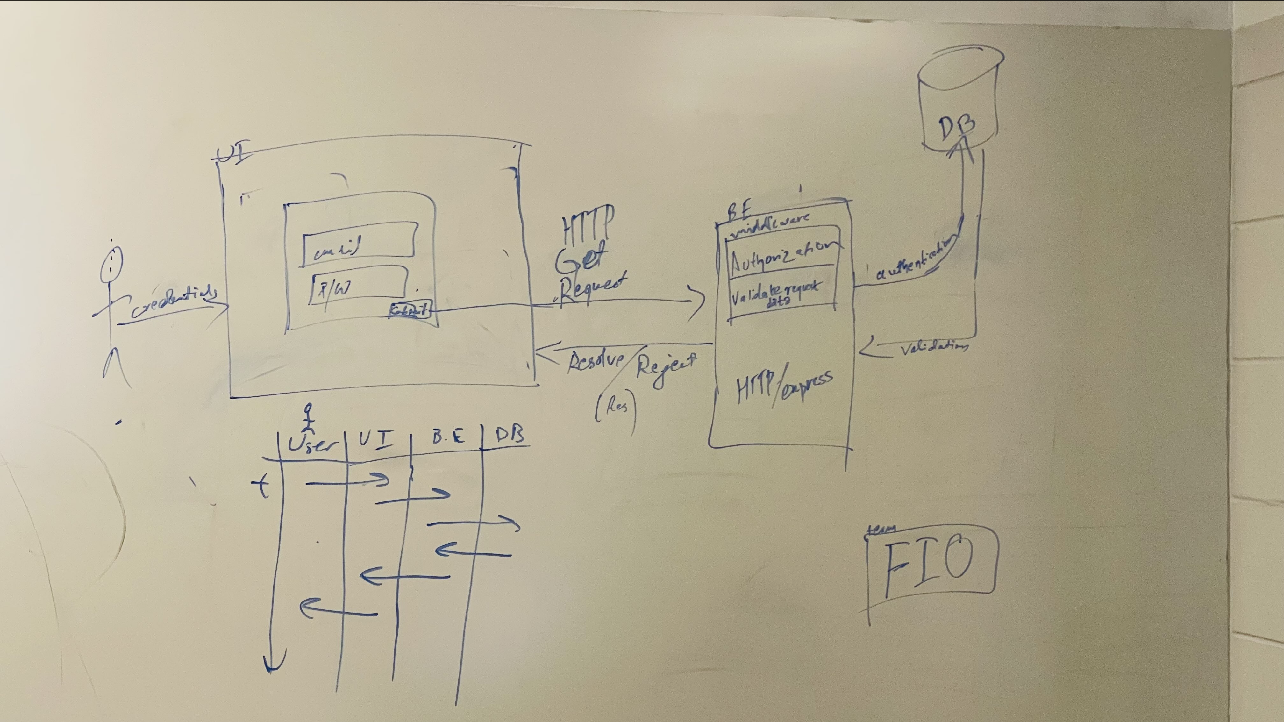 UI
email
P/W
credentials
HTTP
Get
Request
Resolve/Reject
(Res)
B.E
middleware
Authorization
Validate request
data
HTTP/express
DB
authentication
Validation
User UI B.E DB
t
team
FIO